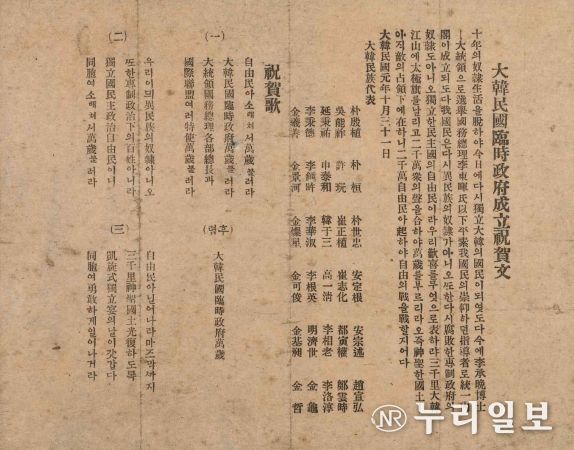 大韓民國臨時政府成立祝賀文
十年의奴隷生活을脫하야今日에다시獨立大韓의國民이되엿도다今에李承晩博士
ㅣ大統領으로選擧國務總理李東暉氏以下平素我國民의崇仰하던指導者로統一內
閣이成立되도다我國民은다시異民族의奴隷가아니오또한다시腐敗한專制政府의
奴隷도아니오獨立한民主國의自由民이라우리歡喜를무엇으로表하랴三千里大韓
江山에太極旗를날리고二千萬衆의聲을合하야萬歲를부르리라오즉神聖한國土
아직敵의占領下에在하니二千萬自由民아起하야自由의戰을戰할지어다
大韓民國元年十月三十一日
大韓民族代表
朴殷植 朴桓 朴世忠 安定根 安宗述 趙宣弘
吳能祚 許玩 崔正植 崔志化 都寅權 鄭雲時
延秉祐 申泰和 韓于三 高一淸 李相老 李洛淳
李秉德 李華淑 李根英 明濟世 金龜
金羲善 金景河 金燦星 金可俊 金基昶 金哲
祝賀歌
(一)
自由民아소래쳐서萬歲불러라
大韓民國臨時政府萬歲불러라
大統領國務總理各部總長과
國際聯盟여러特使萬歲불러라
(후렴)
大韓民國臨時政府萬歲
(二)
우리이믜異民族의奴隷아니오
또한專制政治下의百姓아니라
獨立國民主政治自由民이니
同胞여소래쳐서萬歲불러라
(三)
自由民아닐어나라마즈막까지
三千里神聖國土光復하도록
凱旋式獨立宴의날이갓갑다
同胞여勇敢하게닐어나거라
NR 누리일보